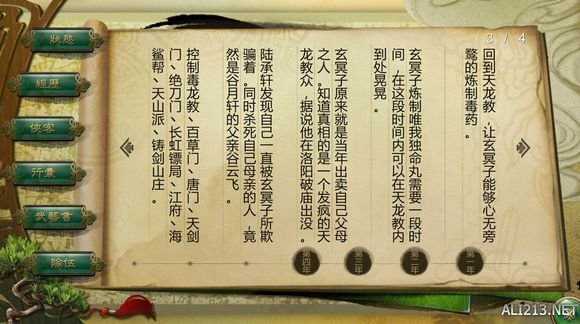 3 / 4
狀態
經歷
俠客
行囊
武藝書
隊伍
回到天龙教，让玄冥子能够心无旁
骛的炼制毒药。
玄冥子炼制唯我独命丸需要一段时
间，在这段时间内可以在天龙教内
到处晃晃。
玄冥子原来就是当年出卖自己父母
之人。知道真相的是一个发疯的天
龙教众，据说他在洛阳破庙出没。
陆承轩发现自己一直被玄冥子所欺
骗着。同时杀死自己母亲的人，竟
然是谷月轩的父亲谷云飞。
控制毒龙教、百草门、唐门、天剑
门、绝刀门、长虹镖局、江府、海
鲨帮、天山派、铸剑山庄。
第一年
第二年
第三年
第四年
ALI213.NET